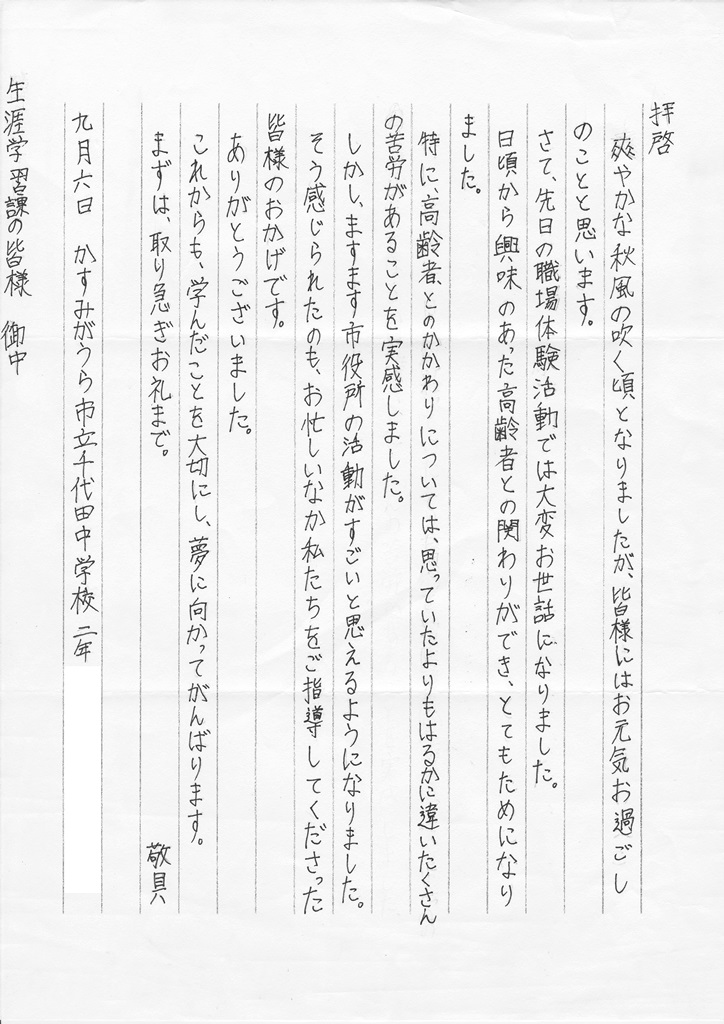 拝啓
爽やかな秋風の吹く頃となりましたが、皆様にはお元気お過ごし
のことと思います。
さて、先日の職場体験活動では大変お世話になりました。
日頃から興味のあった高齢者との関わりができ、とてもためになり
ました。
特に、高齢者とのかかわりについては、思っていたよりもはるかに違いたくさん
の苦労があることを実感しました。
しかし、ますます市役所の活動がすごいと思えるようになりました。
そう感じられたのも、お忙しいなか私たちをご指導してくださった
皆様のおかげです。
ありがとうございました。
これからも、学んだことを大切にし、夢に向かってがんばります。
まずは、取り急ぎお礼まで。
敬具
九月六日 かすみがうら市立千代田中学校 二年
生涯学習課の皆様 御中